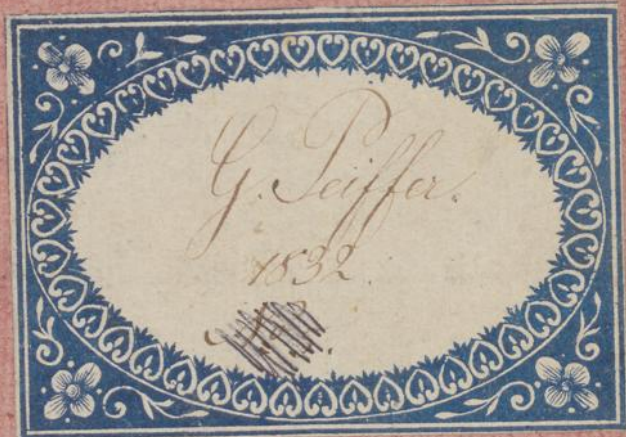 G. Peiffer.
1832.